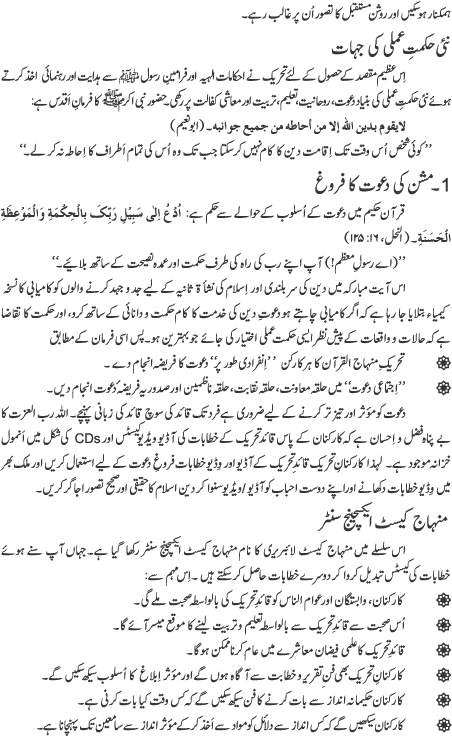 ہمکنار ہوسکیں اور روشن مستقبل کا تصور اُن پر غالب رہے۔
نئی حکمتِ عملی کی جہات
اِس عظیم مقصد کے حصول کے لئے تحریک نے احکاماتِ الٰہیہ اور فرامینِ رسول ﷺ سے ہدایت اور رہنمائی اخذ کرتے
ہوئے نئی حکمتِ عملی کی بنیاد دعوت، روحانیت، تعلیم، تربیت اور معاشی کفالت پر رکھی۔ حضور نبی اکرم ﷺ کا فرمانِ اَقدس ہے:
لايقوم بدين الله إلا من أحاطه من جميع جوانبه۔ (ابونعیم)
’’کوئی شخص اُس وقت تک اِقامتِ دین کا کام نہیں کرسکتا جب تک وہ اُس کی تمام اَطراف کا اِحاطہ نہ کر لے۔‘‘
1۔ مشن کی دعوت کا فروغ
قرآن حکیم میں دعوت کے اُسلوب کے حوالے سے حکم ہے: اُدْعُ اِلٰی سَبِیْلِ رَبِّکَ بِالْحِکْمَةِ وَالْمَوْعِظَةِ
الْحَسَنَةِ۔ (النحل، ۱۶: ۱۲۵)
’’(اے رسولِ معظم!) آپ اپنے رب کی راہ کی طرف حکمت اور عمدہ نصیحت کے ساتھ بلائیے۔‘‘
اس آیت مبارکہ میں دین کی سربلندی اور اِسلام کی نشاۃ ثانیہ کے لیے جد و جہد کرنے والوں کو کامیابی کا نسخہ
کیمیاء بتلایا جا رہا ہے کہ اگر کامیابی چاہتے ہو تو دعوتِ دین کی خدمت کا کام حکمت و دانائی کے ساتھ کرو، اور حکمت کا تقاضا
ہے کہ حالات و واقعات کے پیش نظر ایسی حکمت عملی اختیار کی جائے جو بہترین ہو۔ پس اسی فرمان کے مطابق
تحریکِ منہاج القرآن کا ہر کارکن ’’اِنفرادی طور پر‘‘ دعوت کا فریضہ انجام دے۔
’’اِجتماعی دعوت‘‘ میں حلقہ معاونت، حلقہ نقابت، حلقہ ناظمین اور صدور یہ فریضۂ دعوت انجام دیں۔
دعوت کو مؤثر اور تیز تر کرنے کے لیے ضروری ہے فرد تک قائد کی سوچ قائد کی زبانی پہنچے۔ اللہ رب العزت کا
بے پناہ فضل و اِحسان ہے کہ کارکنان کے پاس قائد تحریک کے خطابات کی آڈیو ویڈیو کیسٹس اور CDs کی شکل میں اَنمول
خزانہ موجود ہے۔ لہٰذا کارکنانِ تحریک قائد تحریک کے آڈیو اور وِڈیو خطابات فروغِ دعوت کے لیے استعمال کریں اور ملک بھر
میں وِڈیو خطابات دکھانے اور اپنے دوست احباب کو آڈیو/ویڈیو سنوا کر دینِ اسلام کا حقیقی اور صحیح تصور اجاگر کریں۔
منہاج کیسٹ ایکسچینج سنٹر
اس سلسلے میں منہاج کیسٹ لائبریری کا نام منہاج کیسٹ ایکسچینج سنٹر رکھا گیا ہے۔ جہاں آپ سنے ہوئے
خطابات کی کیسٹس تبدیل کروا کر دوسرے خطابات حاصل کرسکتے ہیں۔ اِس مہم سے:
کارکنان، وابستگان اور عوام الناس کو قائدِ تحریک کی بالواسطہ صحبت ملے گی۔
اُس صحبت سے قائدِ تحریک سے بالواسطہ تعلیم و تربیت لینے کا موقع میسر آئے گا۔
قائدِ تحریک کا علمی فیضان معاشرے میں عام کرنا ممکن ہوگا۔
کارکنانِ تحریک بھی فنِ تقریر و خطابت سے آگاہ ہوں گے اور مؤثر اِبلاغ کا اُسلوب سیکھ سکیں گے۔
کارکنان حکیمانہ انداز سے بات کرنے کا فن سیکھ سکیں گے کہ کس وقت کیا بات کرنی ہے۔
کارکنان سیکھیں گے کہ کس انداز سے دلائل کو مواد سے اَخذ کرکے مؤثر انداز سے سامعین تک پہنچانا ہے۔